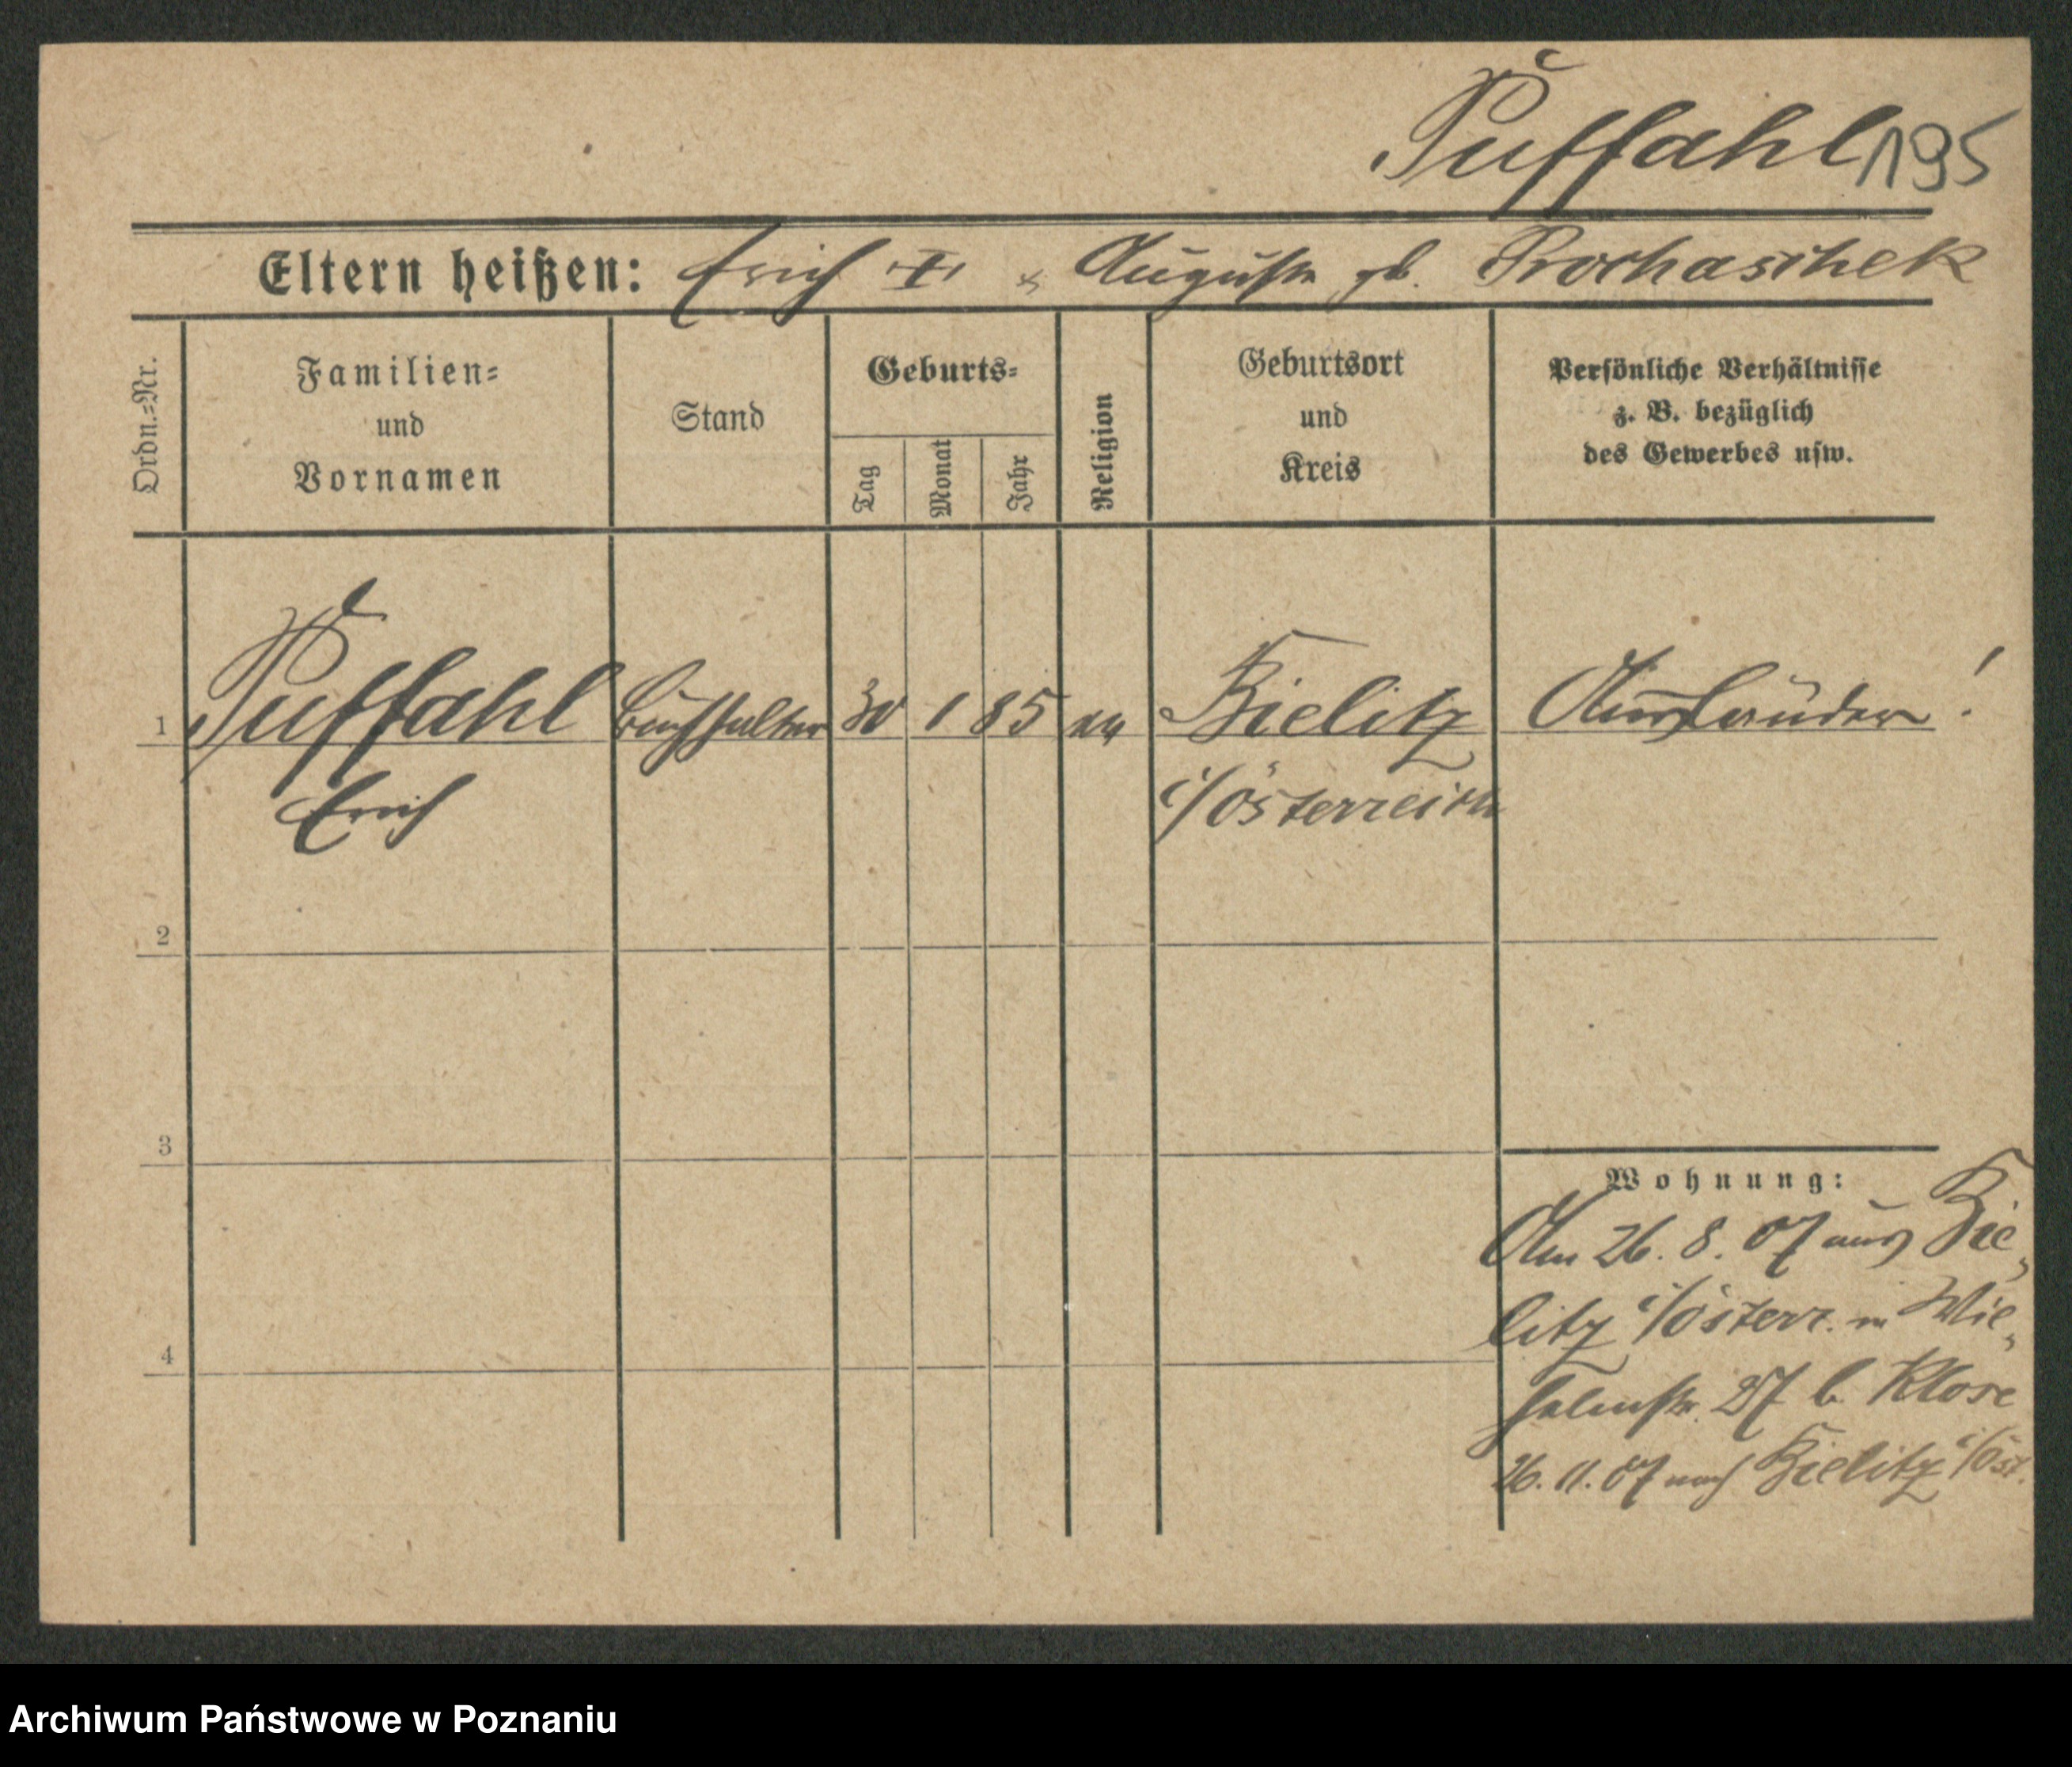 Puffahl 195
Eltern heißen: Erich † & Auguste gb. Prochaschek
Ordn.=Nr.
Familien=
und
Vornamen
Stand
Geburts=
Tag
Monat
Jahr
Religion
Geburtsort
und
Kreis
Persönliche Verhältnisse
z. B. bezüglich
des Gewerbes usw.
1 Puffahl Buchhalter 30 1 85 Bielitz Ausländer!
Erich i/Österreich
2
3
4
Wohnung:
Am 26. 8. 07 aus Bie-
litz i/Österr. in Wil-
helmstr. 27 b. Klose
26. 11. 07 nach Bielitz i/Öst.
Archiwum Państwowe w Poznaniu